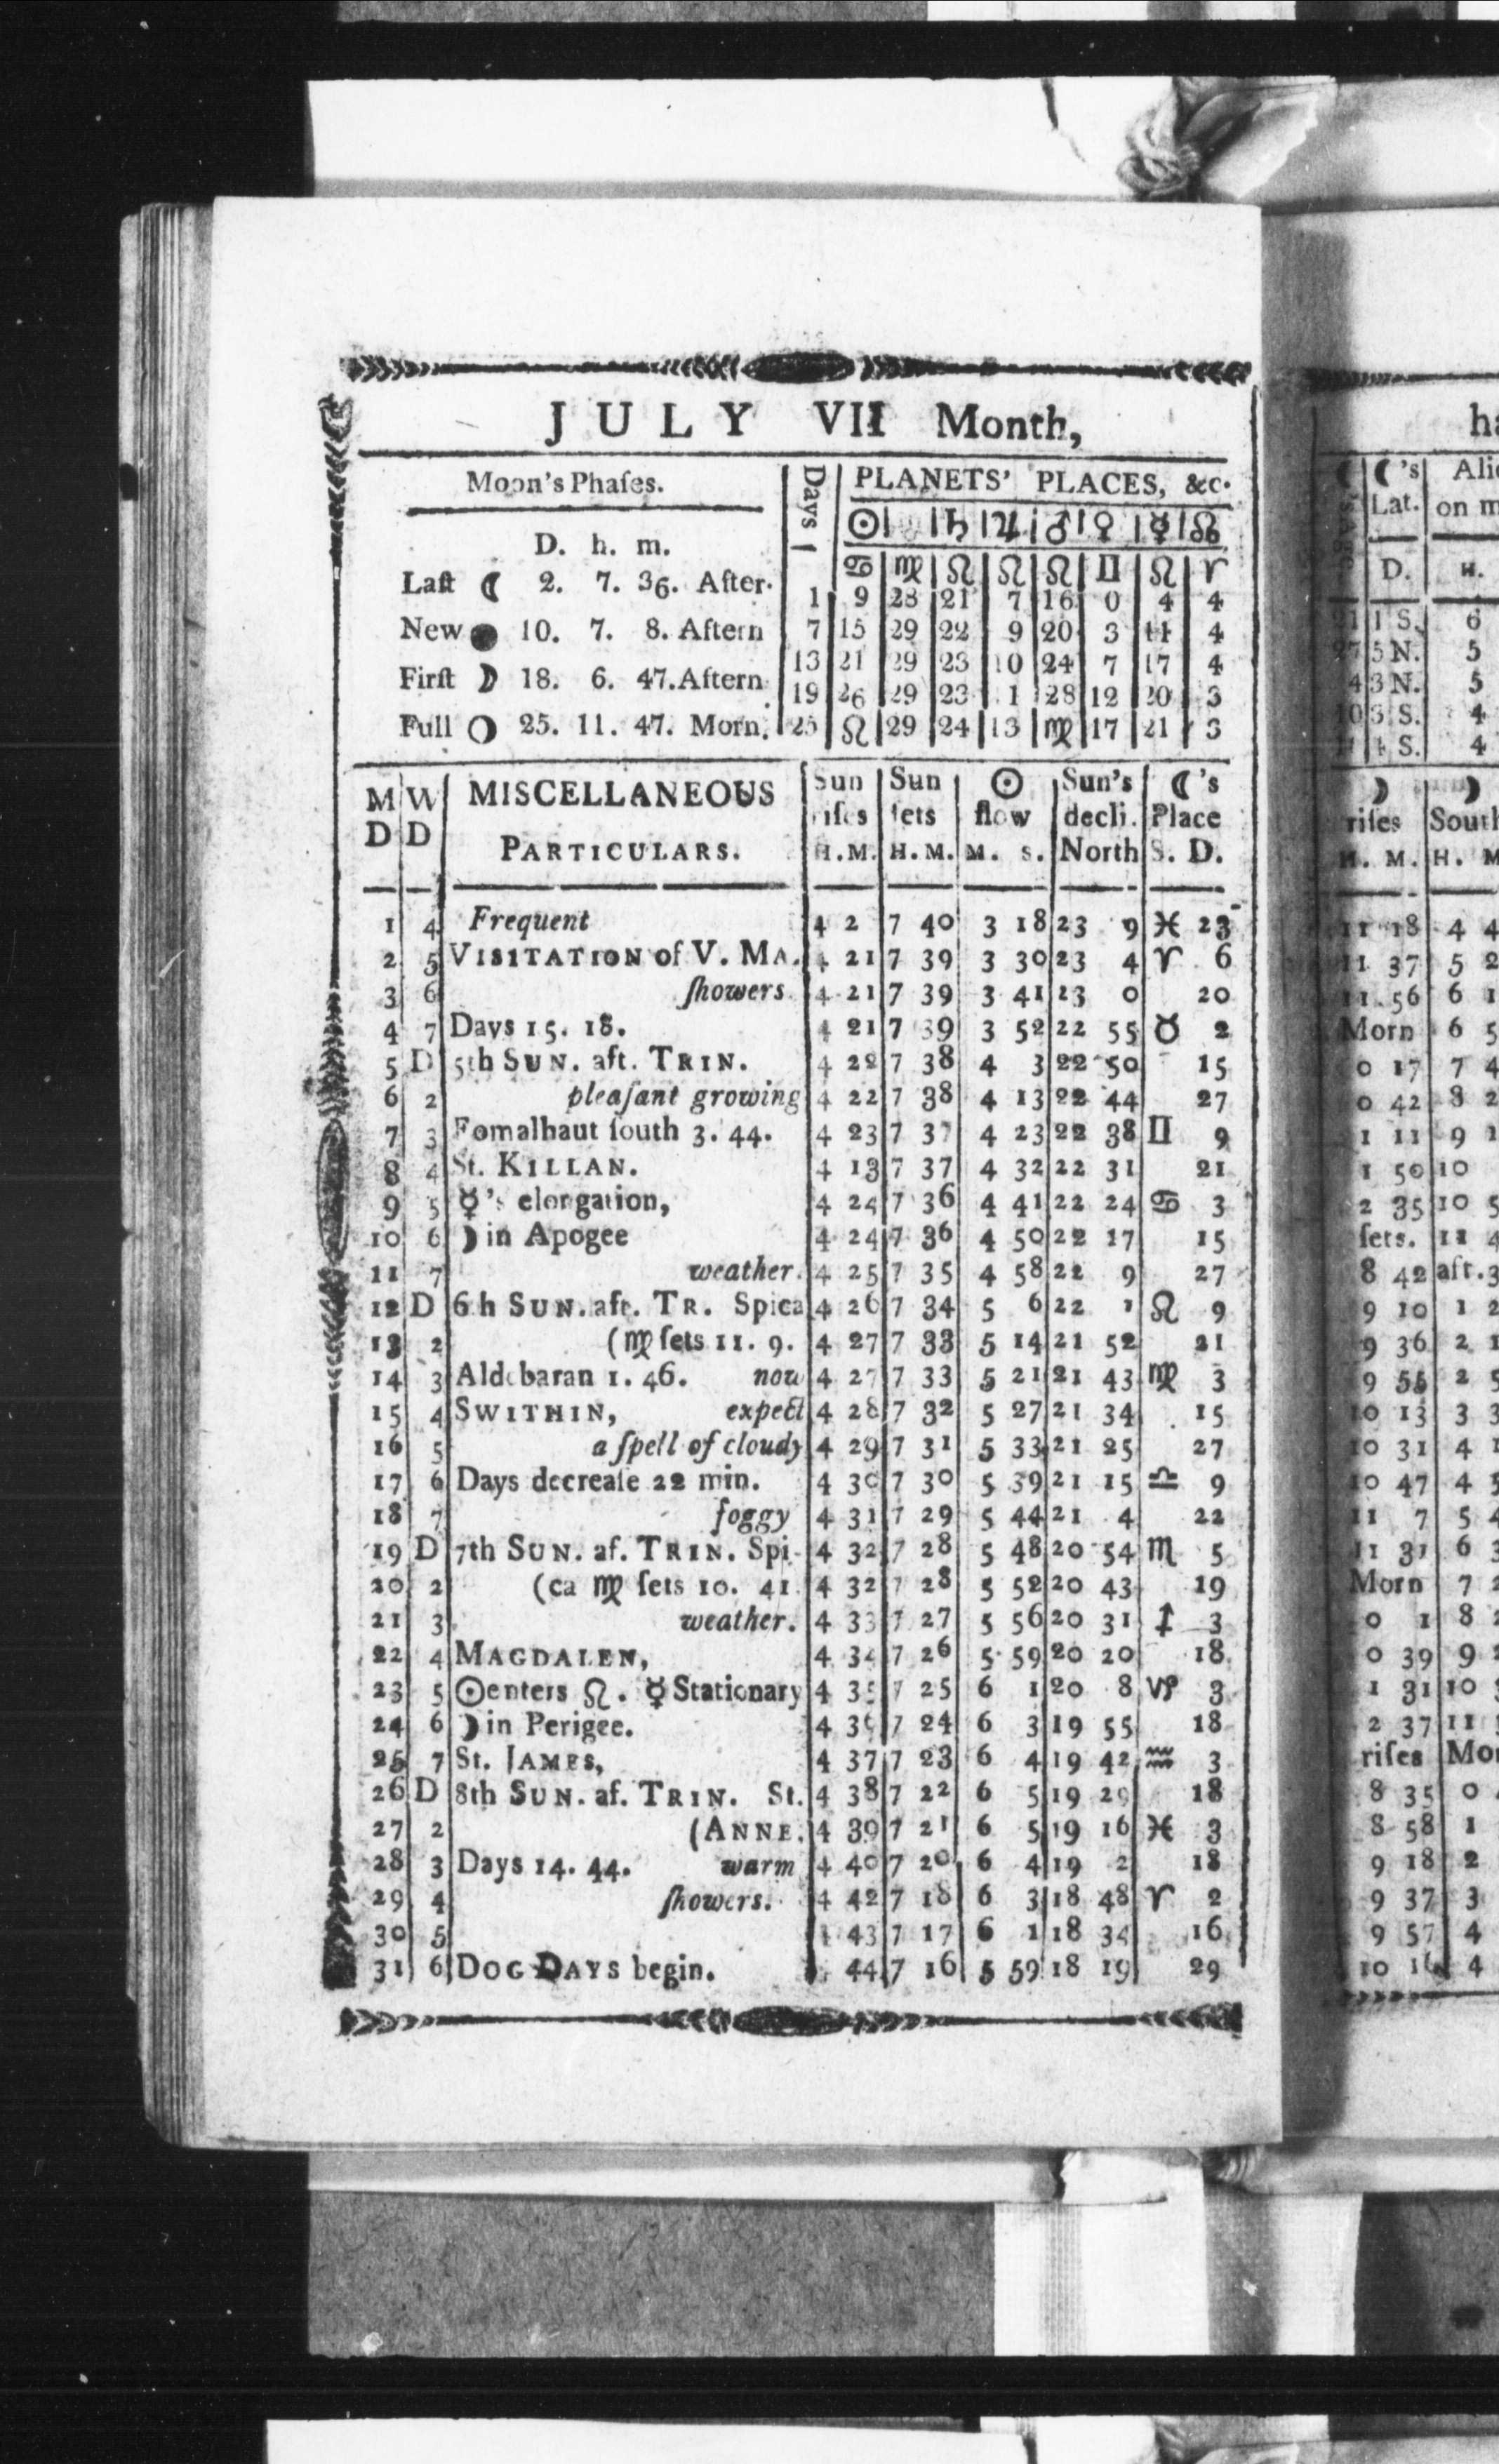 JULY VII Month,
Moon's Phaſes.
D. h. m.
Laſt ☾ 2. 7. 36. After.
New ● 10. 7. 8. Aftern
Firſt ☽ 18. 6. 47. Aftern
Full ○ 25. 11. 47. Morn.
Days PLANETS' PLACES, &c.
☉ ♄ ♃ ♂ ♀ ☿ ☊
♋ ♍ ♌ ♌ ♌ ♊ ♌ ♈
1 9 28 21 7 16 0 4 4
7 15 29 22 9 20 3 11 4
13 21 29 23 10 24 7 17 4
19 26 29 23 1 28 12 20 3
25 ♌ 29 24 13 ♍ 17 21 3
M D W D MISCELLANEOUS PARTICULARS. Sun riſes H.M. Sun ſets H.M. ☉ ſlow M. S. Sun's decli. North ☾'s Place S. D.
1 4 Frequent 4 2 7 40 3 18 23 9 ♓ 23
2 5 VISITATION of V. MA. 4 21 7 39 3 30 23 4 ♈ 6
3 6 ſhowers 4 21 7 39 3 41 23 0 20
4 7 Days 15. 18. 4 21 7 39 3 52 22 55 ♉ 2
5 D 5th SUN. aft. TRIN. 4 22 7 38 4 3 22 50 15
6 2 pleaſant growing 4 22 7 38 4 13 22 44 27
7 3 Fomalhaut ſouth 3. 44. 4 23 7 37 4 23 22 38 ♊ 9
8 4 St. KILLAN. 4 13 7 37 4 32 22 31 21
9 5 ☿'s elongation, 4 24 7 36 4 41 22 24 ♋ 3
10 6 ☽ in Apogee 4 24 7 36 4 50 22 17 15
11 7 weather. 4 25 7 35 4 58 22 9 27
12 D 6 h SUN. aft. TR. Spica 4 26 7 34 5 6 22 1 ♌ 9
13 2 (♍ ſets 11. 9. 4 27 7 33 5 14 21 52 21
14 3 Aldebaran 1. 46. now 4 27 7 33 5 21 21 43 ♍ 3
15 4 SWITHIN, expect 4 28 7 32 5 27 21 34 15
16 5 a ſpell of cloudy 4 29 7 31 5 33 21 25 27
17 6 Days decreaſe 22 min. 4 30 7 30 5 39 21 15 ♎ 9
18 7 foggy 4 31 7 29 5 44 21 4 22
19 D 7th SUN. af. TRIN. Spi- 4 32 7 28 5 48 20 54 ♏ 5
20 2 (ca ♍ ſets 10. 41 4 32 7 28 5 52 20 43 19
21 3 weather. 4 33 7 27 5 56 20 31 ♐ 3
22 4 MAGDALEN, 4 34 7 26 5 59 20 20 18
23 5 ☉ enters ♌. ☿ Stationary 4 35 7 25 6 1 20 8 ♑ 3
24 6 ☽ in Perigee. 4 7 24 6 3 19 55 18
25 7 St. JAMES, 4 37 7 23 6 4 19 42 ♒ 3
26 D 8th SUN. af. TRIN. St. 4 38 7 22 6 5 19 29 18
27 2 (ANNE. 4 39 7 21 6 5 19 16 ♓ 3
28 3 Days 14. 44. warm 4 40 7 20 6 4 19 2 18
29 4 ſhowers. 4 42 7 18 6 3 18 48 ♈ 2
30 5 43 7 17 6 1 18 34 16
31 6 DOG DAYS begin. 44 7 16 5 59 18 19 29
☾'s Lat. on
D. H.
1 S. 6
5 N. 5
3 N. 5
3 S. 4
S. 4
☽ riſes H. M. ☽ H.
11 18 4
11 37 5
11 56 6
Morn 6
0 17 7
0 42 8
1 11 9
1 50 10
2 35 10
ſets. 11
8 42 aft.
9 10 1
9 36 2
9 55 2
10 13 3
10 31 4
10 47 4
11 7 5
11 31 6
Morn 7
0 1 8
0 39 9
1 31 10
2 37 11
riſes
8 35 0
8 58 1
9 18 2
9 37 3
9 57 4
10 16 4